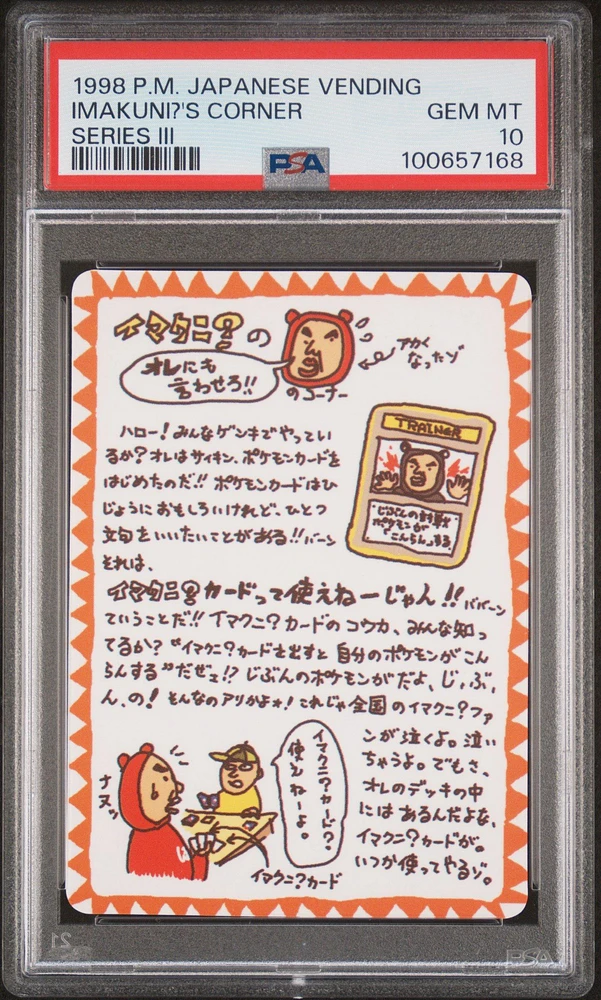 1998 P.M. JAPANESE VENDING
IMAKUNI?'S CORNER GEM MT
SERIES III 10
PSA 100657168
イマクニ?の
オレにも
言わせろ!!
のコーナー
アカく
なったゾ
ハロー!みんなゲンキでやってい
るか?オレはサイキン、ポケモンカードを
はじめたのだ!!ポケモンカードはひ
じょうにおもしろいけれど、ひとつ
文句をいいたいことがある!!バーン
それは、
TRAINER
じぶんの対戦
ポケモンが
「こんらん」する
イマクニ?カードって使えねーじゃん!!ババーン
ていうことだ!!イマクニ?カードのコウカ、みんな知っ
てるか?“イマクニ?カードを出すと自分のポケモンがこん
らんする”だぜェ!?じぶんのポケモンがだよ、じ,ぶ,
ん、の!そんなのアリかよォ!これじゃ全国のイマクニ?ファ
ンが泣くよ。泣い
ちゃうよ。でもさ、
オレのデッキの中
にはあるんだよな、
イマクニ?カードが。
いつか使ってやるゾ。
イマクニ?カード?
使えねーよ。
ナヌッ
イマクニ?カード
PSA